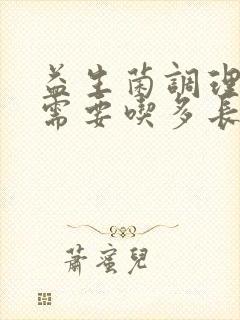 益生菌調理
需要喫多長
蕭蜜兒